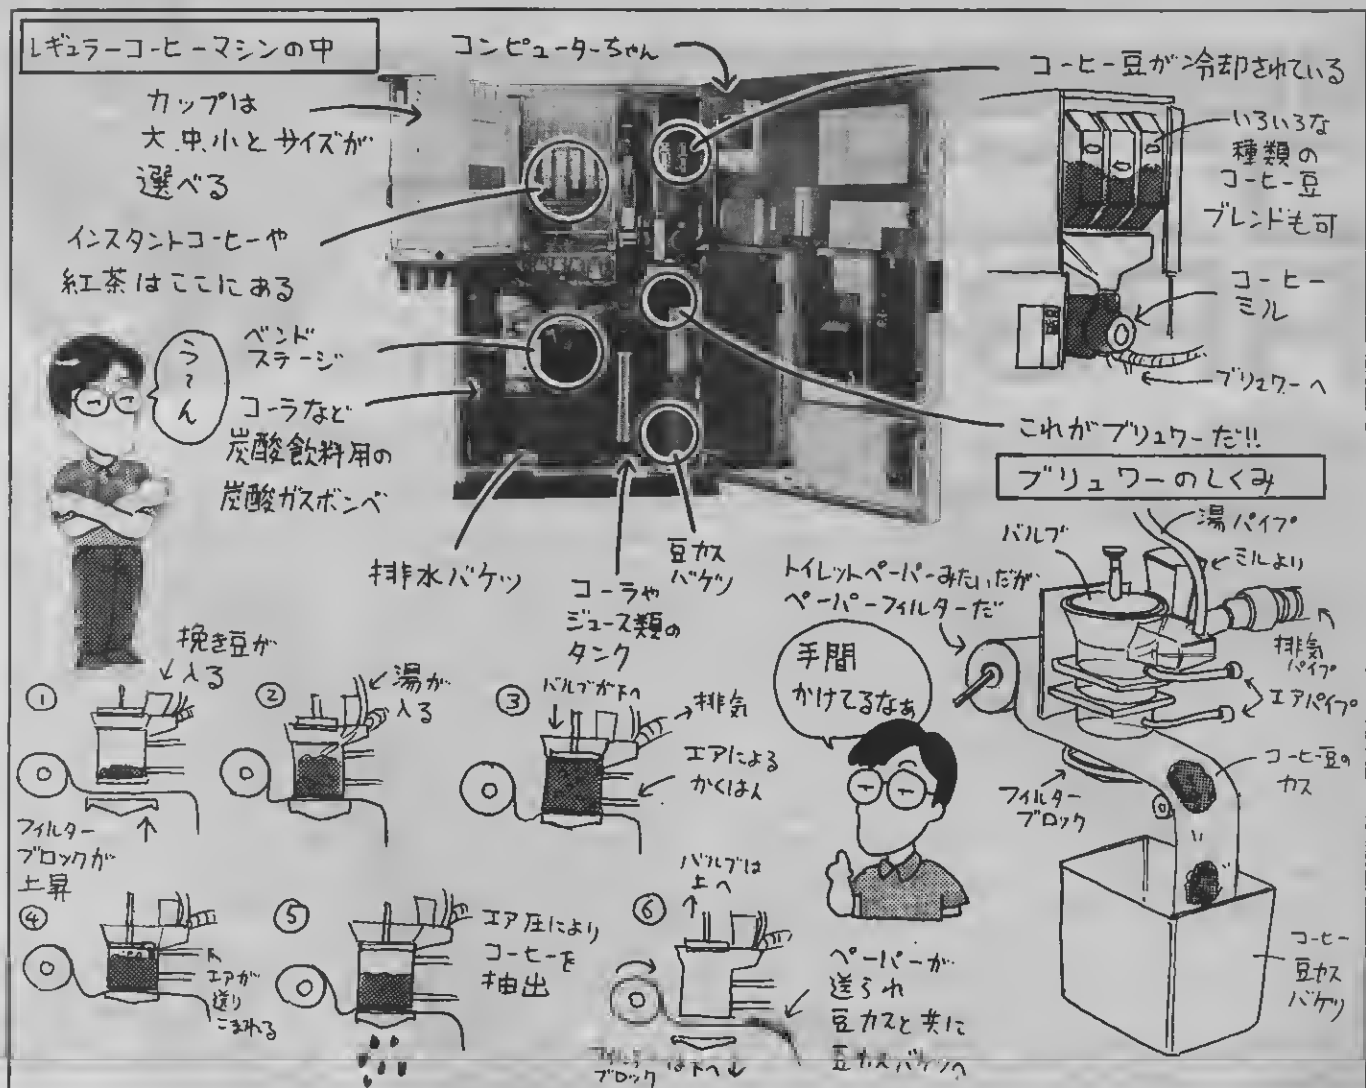 レギュラーコーヒーマシンの中
コンピューターちゃん
コーヒー豆が冷却されている
カップは
大.中.小とサイズが
選べる
インスタントコーヒーや
紅茶はここにある
う〜ん
ベンド
ステージ
コーラなど
炭酸飲料用の
炭酸ガスボンベ
排水バケツ
コーラや
ジュース類の
タンク
豆カス
バケツ
いろいろな
種類の
コーヒー豆
ブレンドも可
コーヒー
ミル
ブリュワーへ
これがブリュワーだ!!
ブリュワーのしくみ
バルブ
湯パイプ
ミルより
排気
パイプ
エアパイプ
トイレットペーパーみたいだが
ペーパーフィルターだ
フィルター
ブロック
コーヒー豆の
カス
コーヒー
豆カス
バケツ
手間
かけてるなぁ
①
挽き豆が
入る
フィルター
ブロックが
上昇
②
湯が
入る
③
バルブが下へ
排気
エアによる
かくはん
④
エアが
送り
こまれる
⑤
エア圧により
コーヒーを
抽出
⑥
バルブは
上へ
フィルター
ブロック
は下へ
ペーパーが
送られ
豆カスと共に
豆カスバケツへ